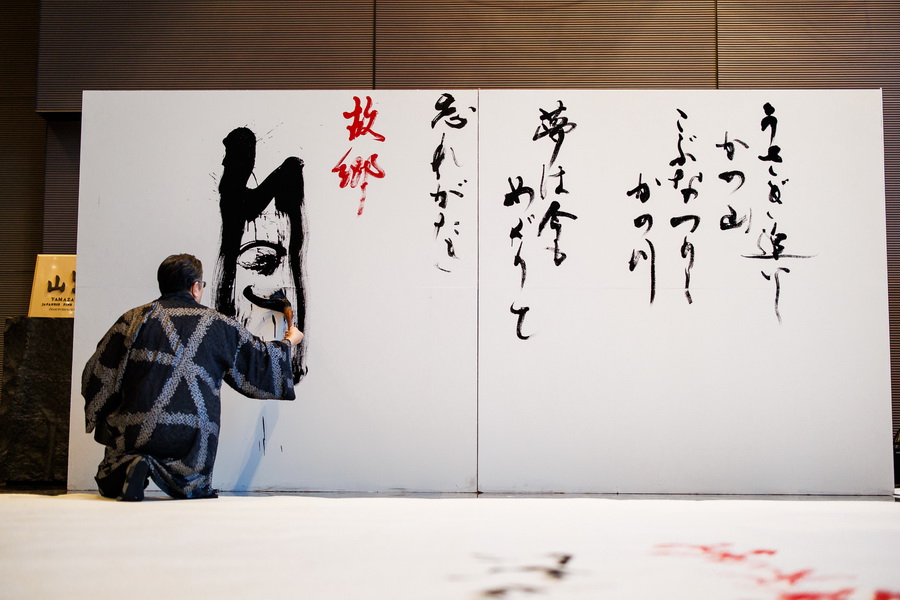 うさぎ追いし
かの山
こぶなつりし
かの川
夢は今も
めぐりて
忘れがたき
故郷
山
YAMAZA